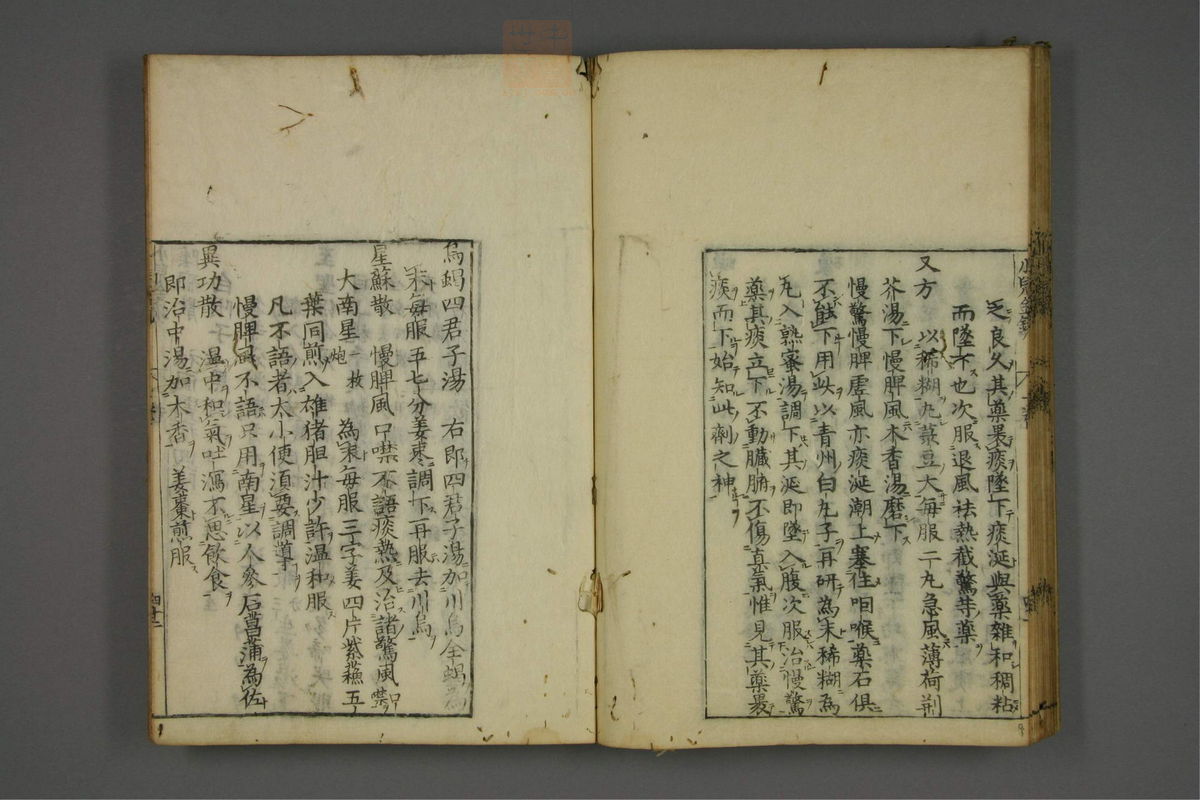 乏良久其藥裹痰墜下痰涎與藥雜和稠粘
而墜下也次服退風祛熱截驚等藥
又方　以稀糊丸菉豆大每服二十丸急風薄荷荆
芥湯下慢脾風木香湯磨下
慢驚慢脾虛風亦痰涎潮上塞住咽喉藥石俱
不能下用此以青州白丸子再研為末稀糊為
丸入熟蜜湯調下其涎即墜入腹次服治慢驚
藥其痰立下不動臟腑不傷真氣惟見其藥裹
痰而下始知此劑之神
烏蝎四君子湯　右即四君子湯加川烏全蝎為
末每服五七分姜棗調下再服去川烏
星蘇散　慢脾風口噤不語痰熱及治諸驚風口噤
大南星一枚炮　為末每服三字姜四片紫蘓五
葉同煎入雄猪胆汁少許温和服
凡不語者大小便須要調導
慢脾風不語只用南星以人參石菖蒲為佐
異功散　温中和氣吐瀉不思飲食
即治中湯加木香　姜棗煎服
四十二